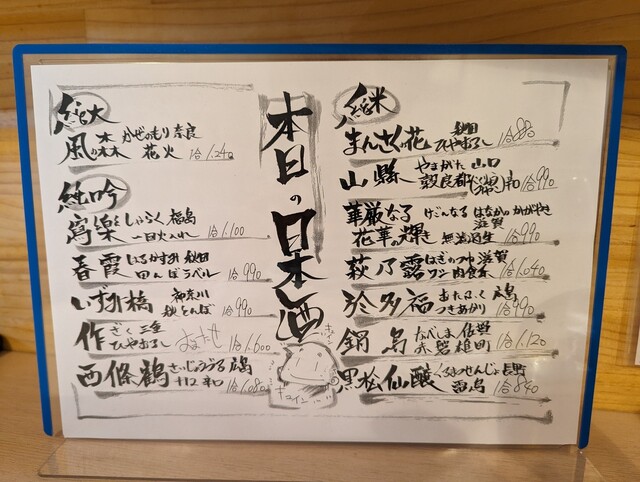 本日の日本酒
純米
まんさくの花 秋田 ひやおろし 1合880
山縣 やまがた 山口 穀良都 1合990
華厳なる花華の燿き けごんなる はなかのかがやき 滋賀 無濾過生 1合990
萩乃露 はぎのつゆ 滋賀 ワン肉食系 1合1.040
於多福 おたふく 広島 つきあかり 1合990
鍋島 なべしま 佐賀 赤磐雄町 1合1.120
黒松仙醸 くろまつせんじょう 長野 1合840
純大
風の森 かぜのもり 奈良 花火 1合1.240
純吟
寫樂 しゃらく 福島 一回火入れ 1合1.100
春霞 はるかすみ 秋田 田んぼラベル 1合990
いづみ橋 神奈川 秋とんぼ 1合990
作 ざく 三重 ひやおろし 1合1.600
西條鶴 さいじょうづる 広島 辛口 1合1.080